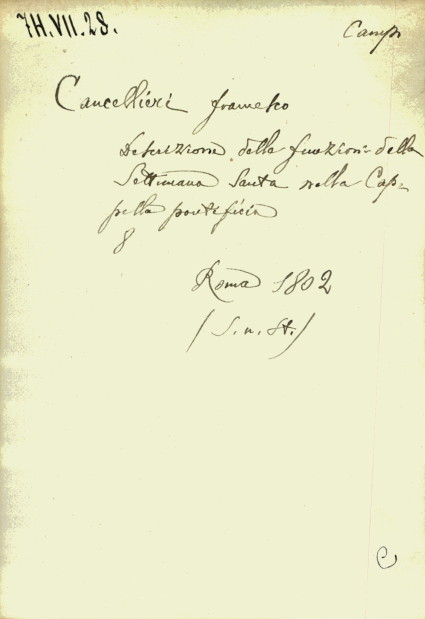 7H.VII.28.
Camp
Cancellieri Francesco
Descrizione delle funzioni della
Settimana Santa nella Cap=
pella pontificia
8
Roma 1802
(S. n. St.)
C